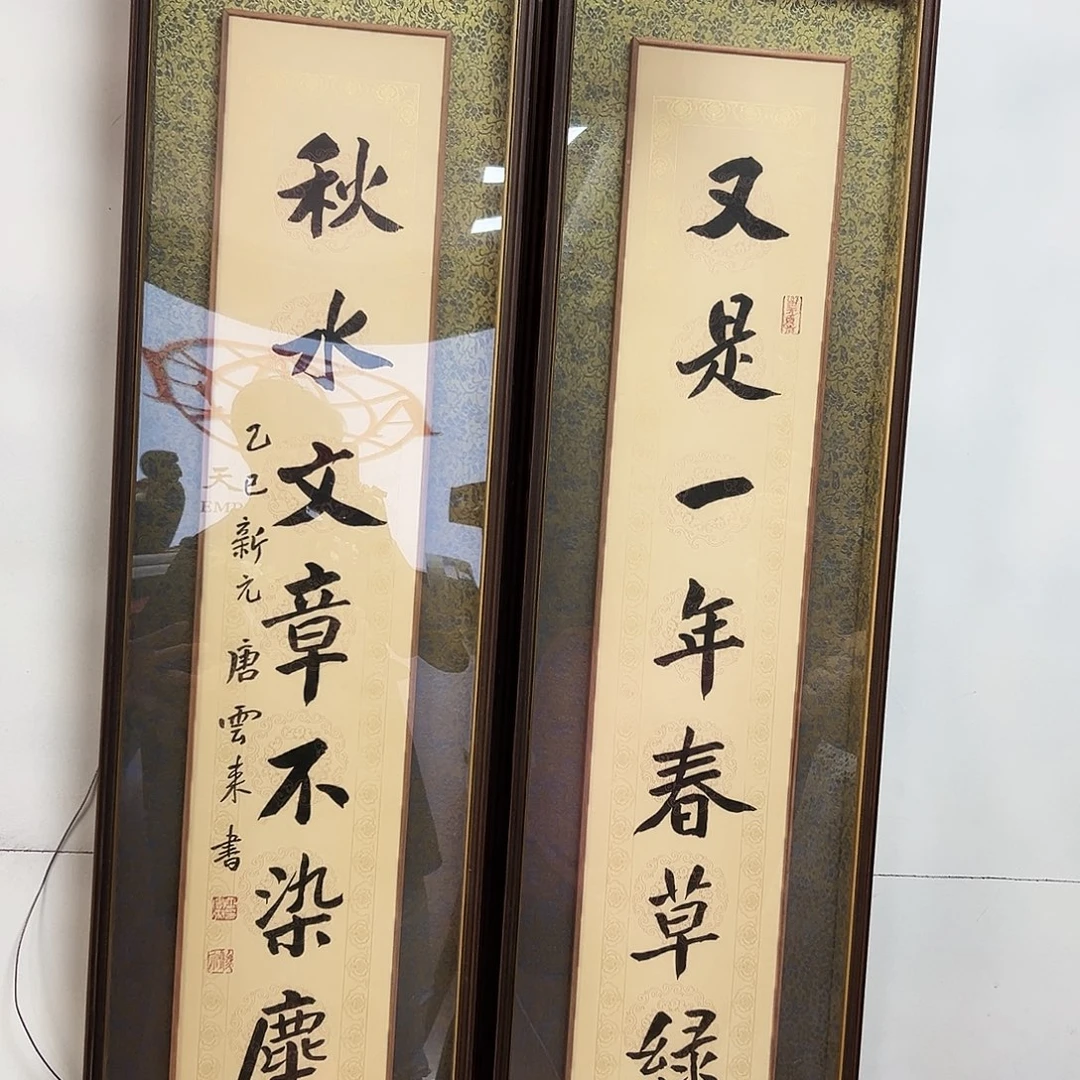 又是一年春草绿
秋水文章不染塵
乙巳新元 唐雲来書
天
EMP